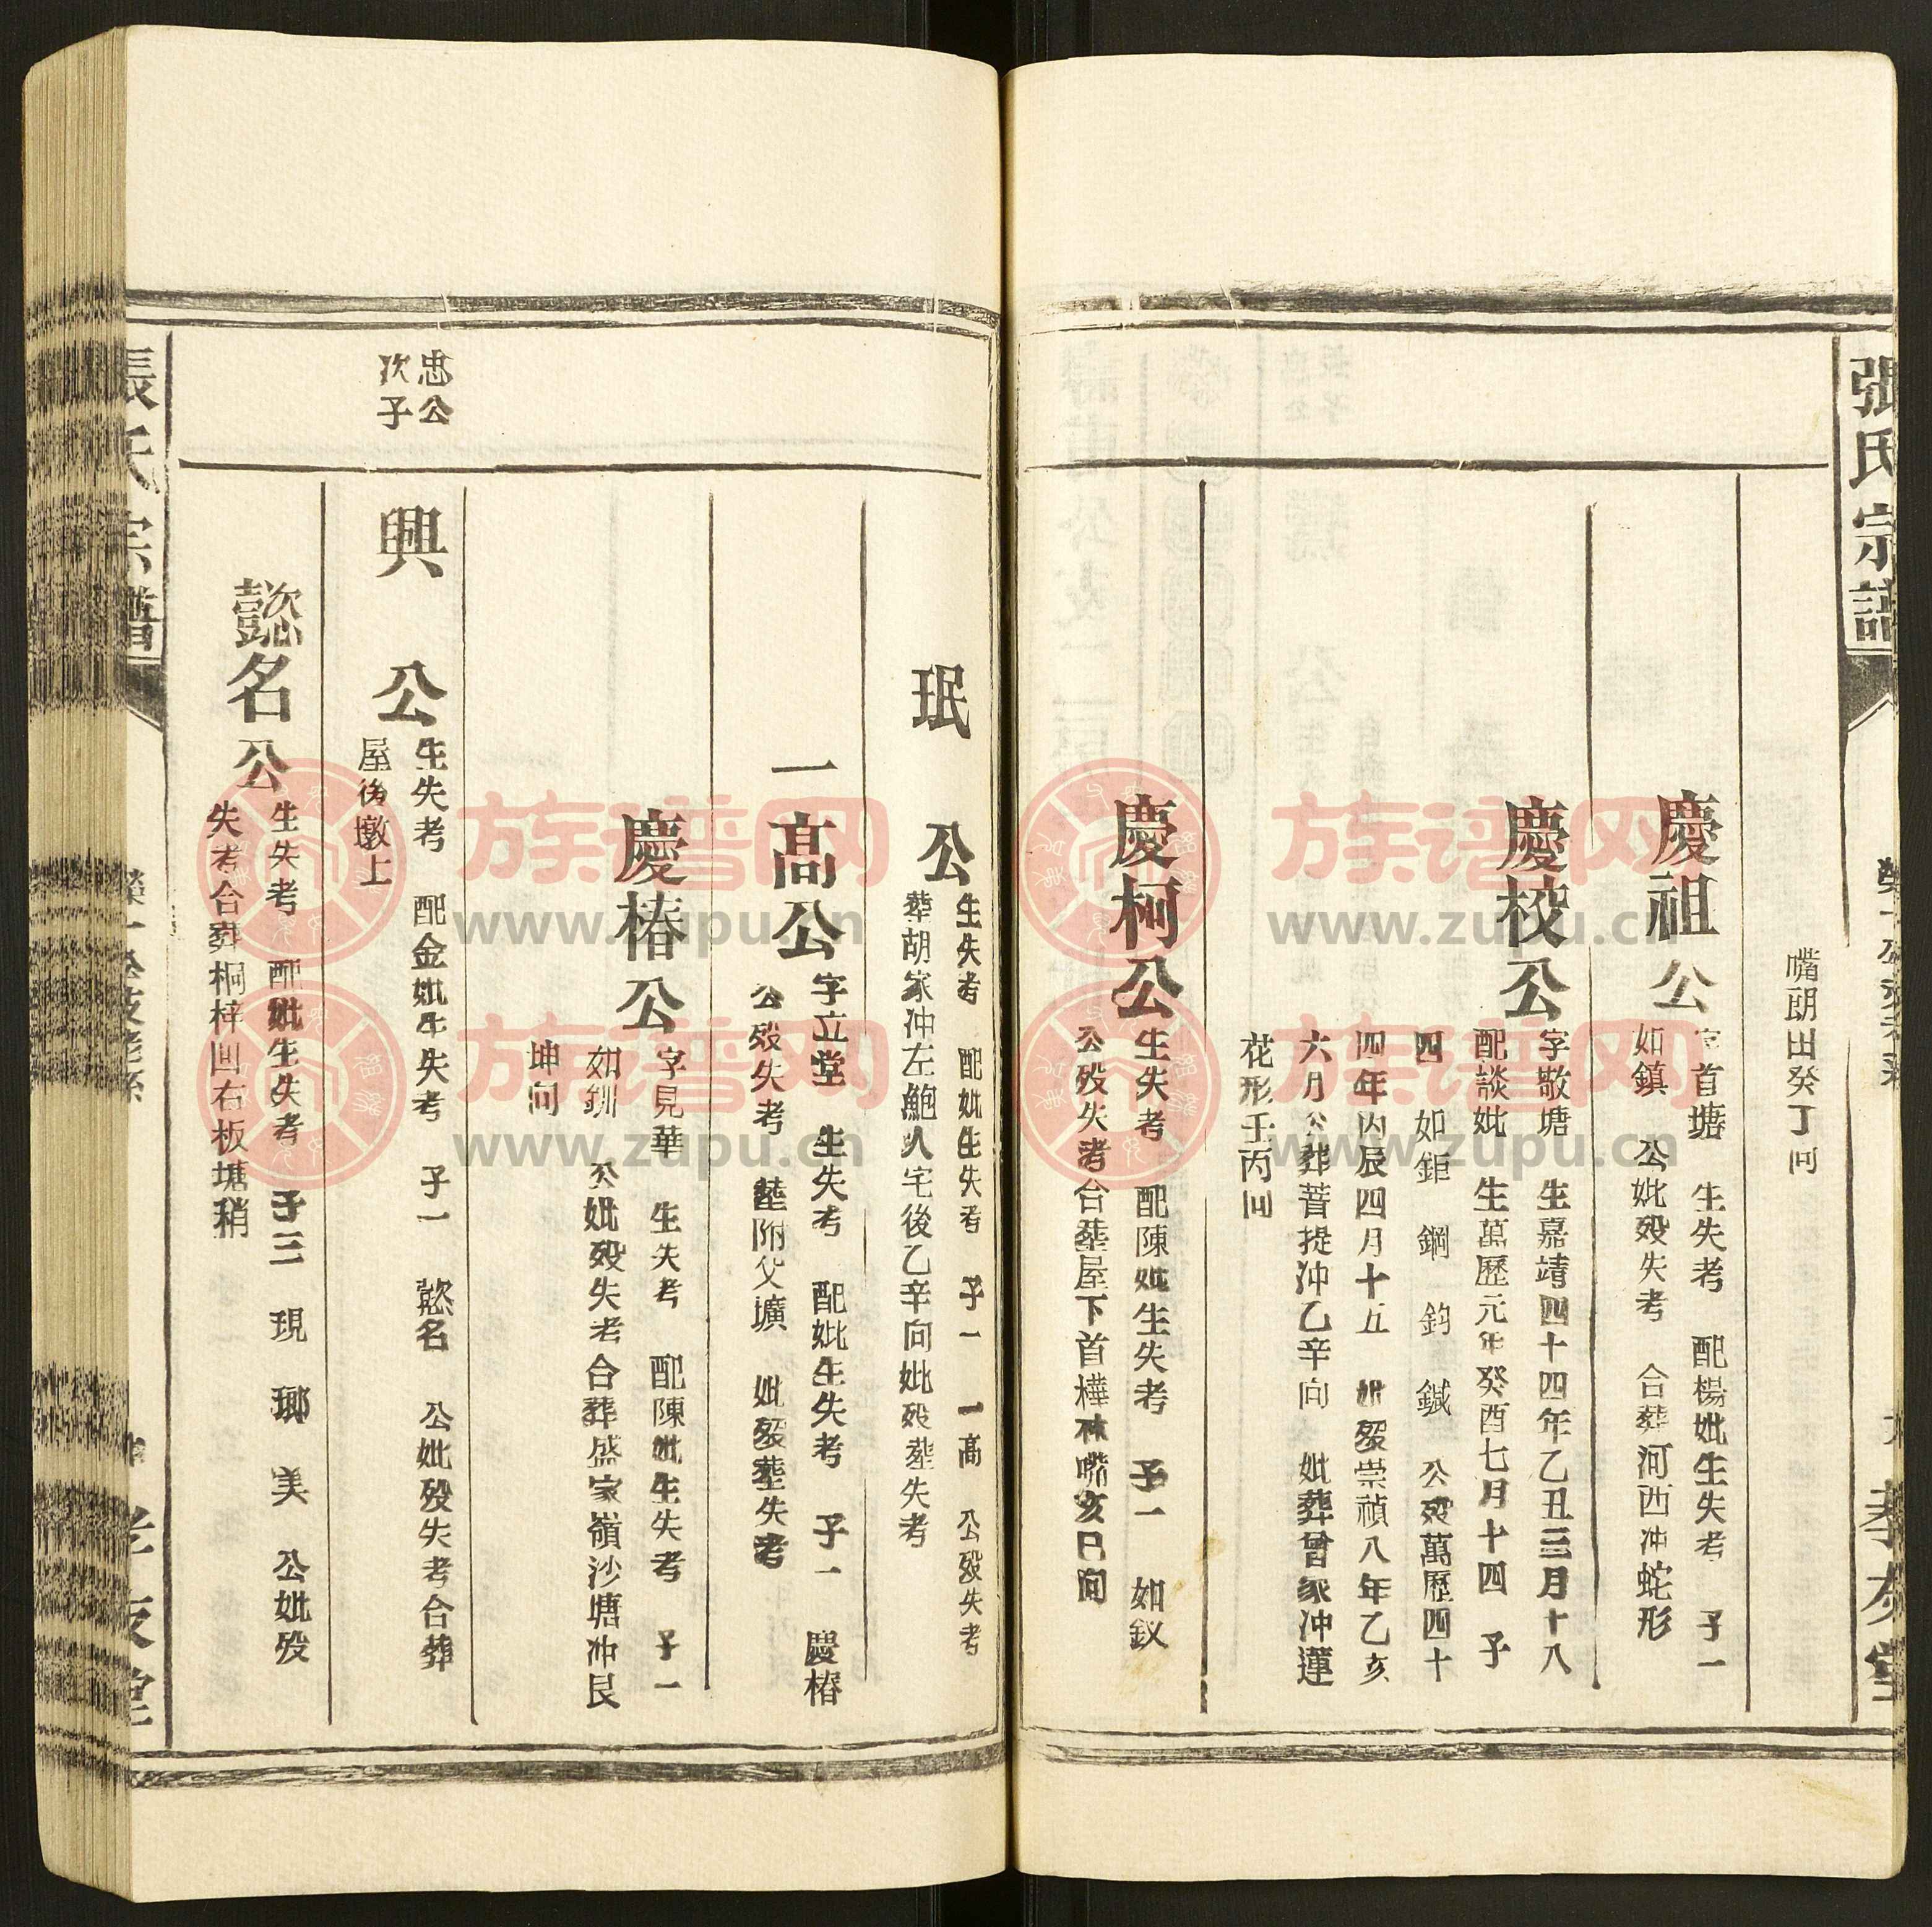 張氏宗譜
嘴朗田癸丁向
慶祖公
字首塘 生失考 配楊妣生失考 子一
如鎮 公妣歿失考 合葬河西冲蛇形
慶校公
字敬塘 生嘉靖四十四年乙丑三月十八
配談妣 生萬歷元年癸酉七月十四 子
四 如鉅 鋼 鈞 鍼 公歿萬歷四十
四年丙辰四月十五 妣歿崇禎八年乙亥
六月公葬菩提冲乙辛向 妣葬曾家冲蓮
花形壬丙向
慶柯公
生失考 配陳妣生失考 子一 如釵
公歿失考合塟屋下首樺林嘴亥巳向
珉公
生失考 配妣生失考 子一 一高 公歿失考
葬胡家冲左鮑人宅後乙辛向妣歿塟失考
一高公
字立堂 生失考 配妣生失考 子一 慶椿
公歿失考 塟附父壙 妣歿塟失考
慶椿公
字見華 生失考 配陳妣生失考 子一
如釧 公妣歿失考合葬盛家嶺沙塘冲艮
坤向
忠公
次子
興公
生失考 配金妣生失考 子一 懿名 公妣歿失考合葬
屋後墩上
懿名公
生失考 配妣生失考 子三 現 瑯 美 公妣歿
失考合葬桐梓囬右板塘稍
張氏宗譜
族谱网
www.zupu.cn
族谱网
www.zupu.cn
族谱网
www.zupu.cn
族谱网
www.zupu.cn